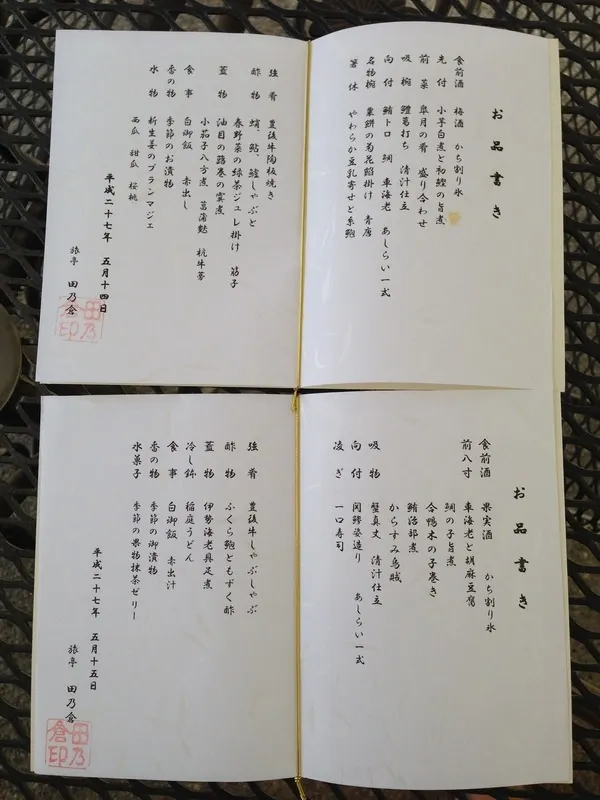 お品書き
食前酒 梅酒 かち割り氷
先付 小芋白煮と初鰹の旨煮
前菜 皐月の肴 盛り合わせ
吸椀 鱧葛打ち 清汁仕立
向付 鮪トロ 鯛 車海老 あしらい一式
名物椀 粟餅の菊花餡掛け 青唐
箸休 やわらか豆乳寄せと糸鮑
強肴 豊後牛陶板焼き
酢物 蛸、鮎、鱧しゃぶと
春野菜の緑茶ジュレ掛け 筋子
蓋物 油目の蕗巻の霙煮
小茄子八方煮 菖蒲麩 杭牛蒡
食事 白御飯 赤出し
香の物 季節のお漬物
水物 新生姜のブランマジェ
西瓜 甜瓜 桜桃
平成二十七年 五月十四日
旅亭 田乃倉
田乃倉印
お品書き
食前酒 果実酒 かち割り氷
前八寸 車海老と胡麻豆腐
鯛の子旨煮
合鴨木の子巻き
鮪治部煮
からすみ烏賊
吸物 蟹真丈 清汁仕立
向付 関鯵姿造り あしらい一式
凌ぎ 一口寿司
強肴 豊後牛しゃぶしゃぶ
酢物 ふくら鮑ともずく酢
蓋物 伊勢海老具足煮
冷し鉢 稲庭うどん
食事 白御飯 赤出汁
香の物 季節の御漬物
水菓子 季節の果物抹茶ゼリー
平成二十七年 五月十五日
旅亭 田乃倉
田乃倉印